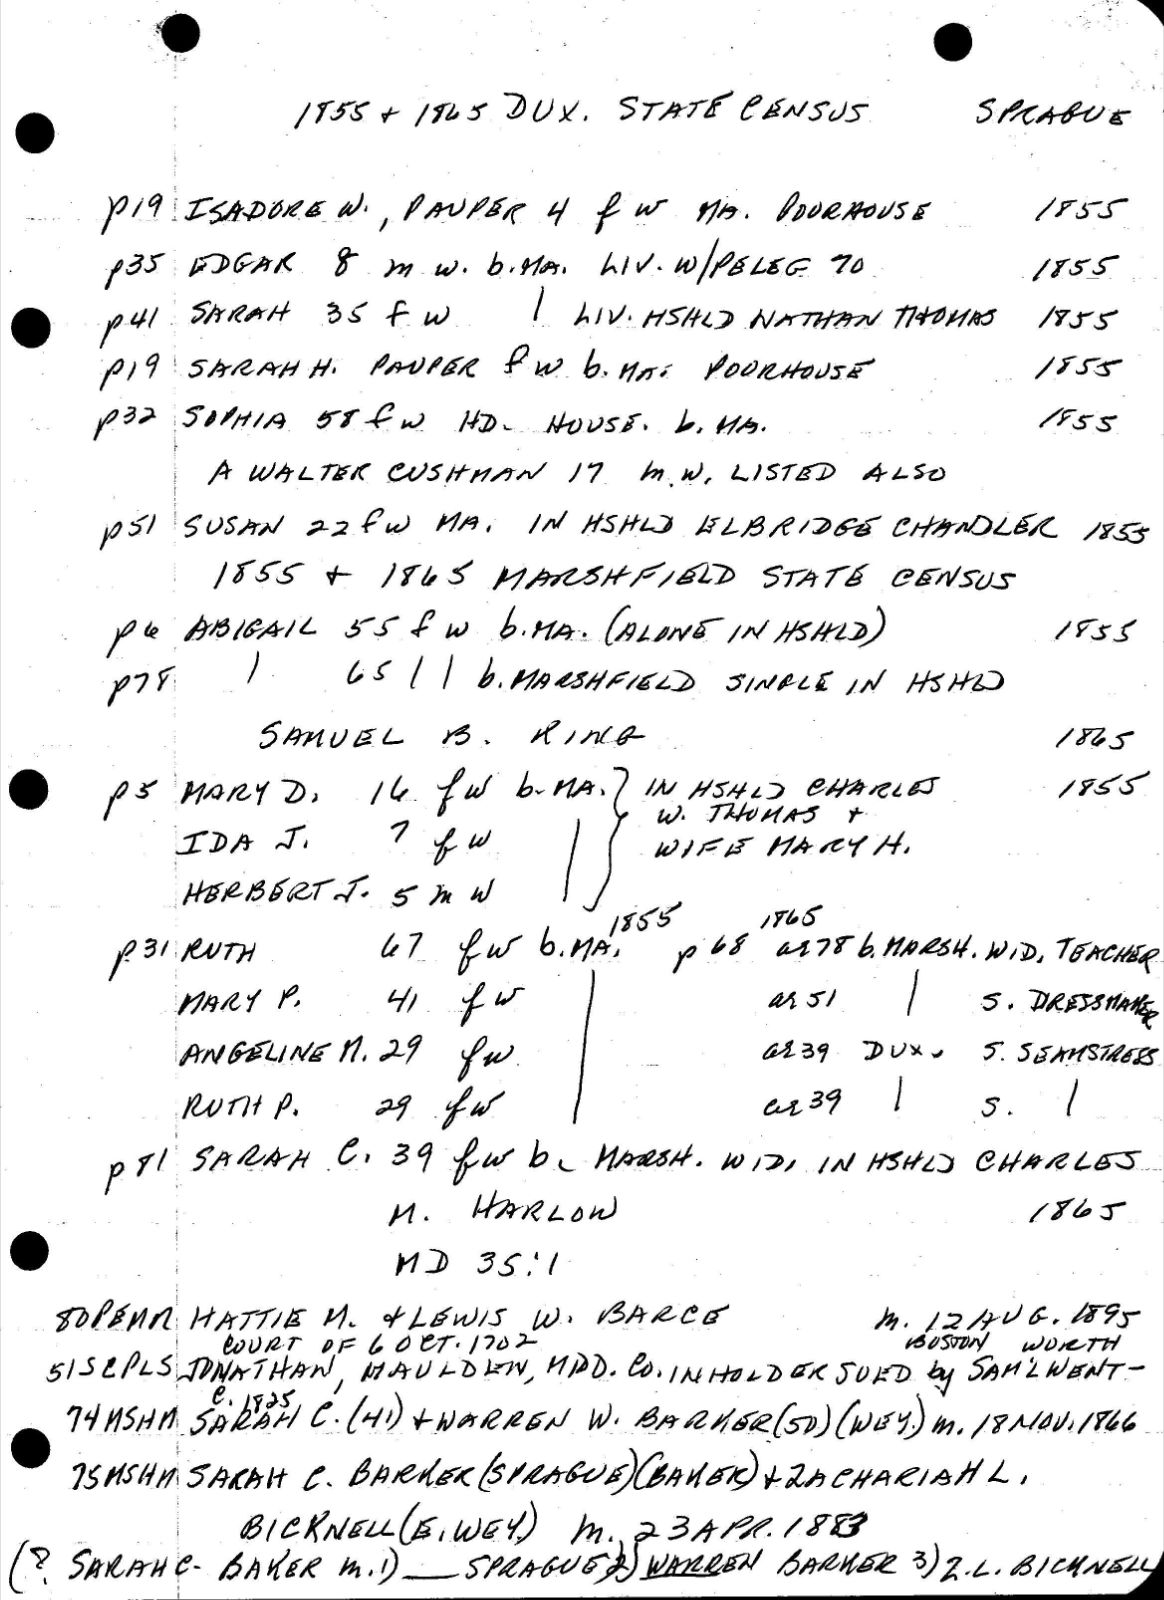 1855 + 1865 DUX. STATE CENSUS SPRAGUE
p19 ISADORE W., PAUPER 4 f w MA. POORHOUSE 1855
p35 EDGAR 8 m w. b.MA. LIV. W/PELEG 70 1855
p41 SARAH 35 f w | LIV. HSHLD NATHAN THOMAS 1855
p19 SARAH H. PAUPER f w b. MA. POORHOUSE 1855
p32 SOPHIA 58 f w HD. HOUSE. b. MA. 1855
A WALTER CUSHMAN 17 m.w. LISTED ALSO
p51 SUSAN 22 f w MA. IN HSHLD ELBRIDGE CHANDLER 1855
1855 + 1865 MARSHFIELD STATE CENSUS
p6 ABIGAIL 55 f w b.MA. (ALONE IN HSHLD) 1855
p78 | 65 | | b. MARSHFIELD SINGLE IN HSHLD
SAMUEL B. RING 1865
p5 MARY D. 16 f w b.MA. } IN HSHLD CHARLES 1855
W. THOMAS +
IDA J. 7 f w | WIFE MARY H.
HERBERT J. 5 m w
1855 1865
p.31 RUTH 67 f w b.MA. p 68 ae 78 b. MARSH. WID. TEACHER
MARY P. 41 f w | ae 51 | S. DRESSMAKER
ANGELINE M. 29 f w ae 39 DUX. S. SEAMSTRESS
RUTH P. 29 f w ae 39 | S. |
p81 SARAH C. 39 f w b. MARSH. WID. IN HSHLD CHARLES
M. HARLOW 1865
MD 35:1
80PEMM HATTIE M. & LEWIS W. BARCE m. 12 AUG. 1895
COURT OF 6 OCT. 1702 BOSTON WORTH
51SCPLS JONATHAN, MAULDEN, MIDD. CO. INHOLDER SUED by SAM'L WENT-
c. 1825
74MSHM SARAH C. (41) + WARREN W. BARKER (50) (WEY.) m. 18 NOV. 1866
75MSHM SARAH C. BARKER (SPRAGUE) (BAKER) + ZACHARIAH L.
BICKNELL (E. WEY.) m. 23 APR. 1883
(? SARAH C. BAKER m. 1) ___ SPRAGUE 2) WARREN BARKER 3) Z.L. BICKNELL